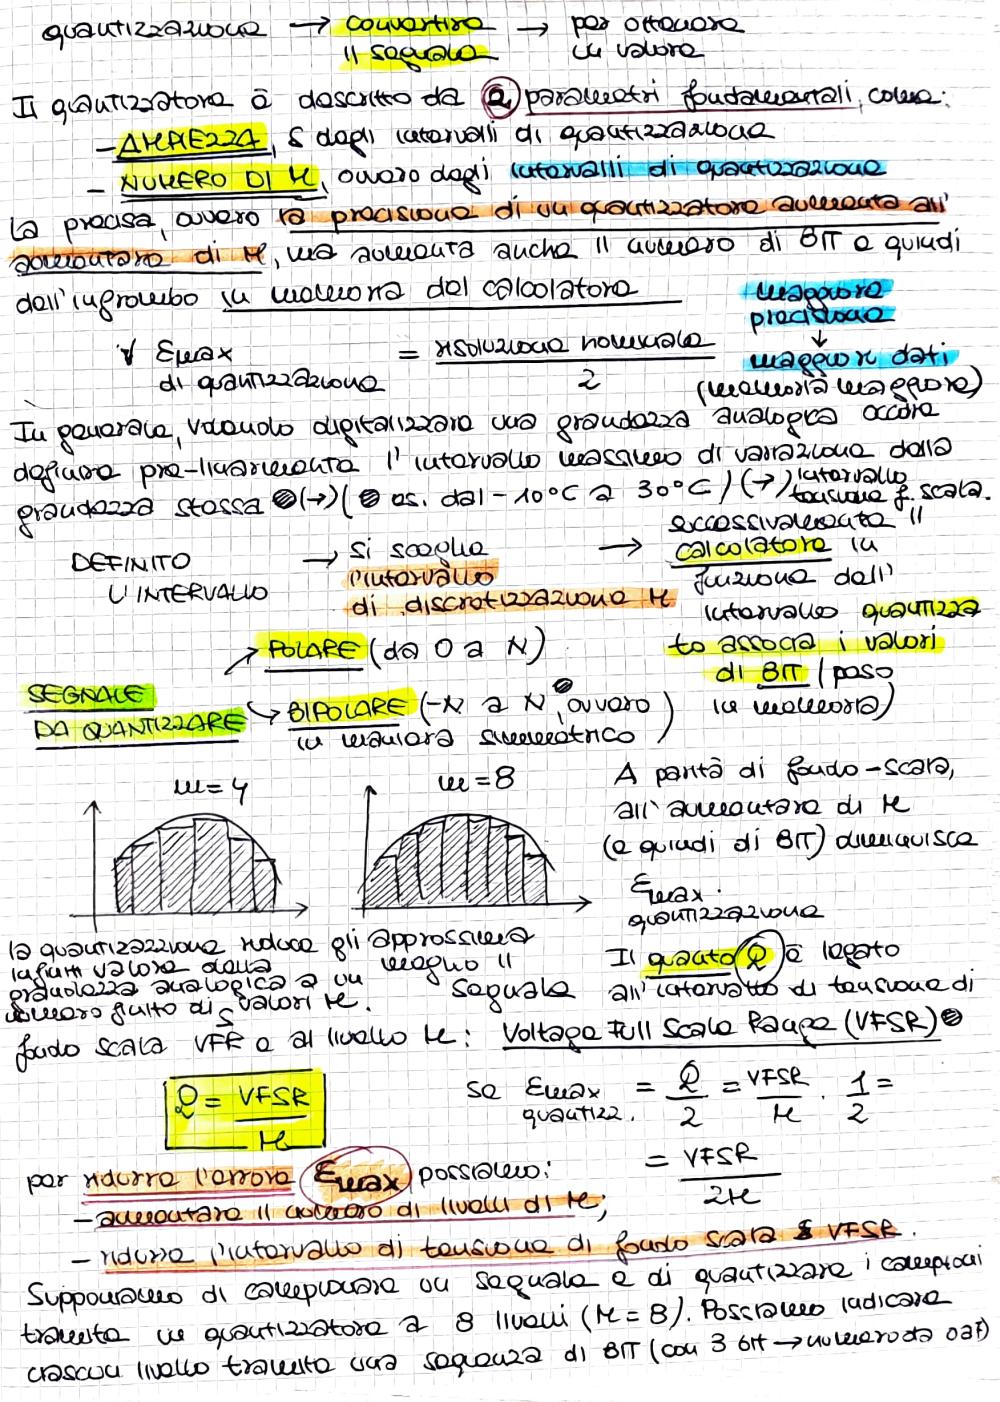 quantizzazione → convertire → per ottenere
il segnale un valore
Il quantizzatore è descritto da 2 parametri fondamentali, come:
- AMPIEZZA, S degli intervalli di quantizzazione
- NUMERO DI M, ovvero degli intervalli di quantizzazione
La precisa, ovvero la precisione di un quantizzatore aumenta all'
aumentare di M, ma aumenta anche il numero di BIT e quindi
dell'ingrombo in memoria del calcolatore
maggiore
precisione
↓
maggiori dati
(memoria maggiore)
∀ Emax = risoluzione nominale
di quantizzazione 2
In generale, volendo digitalizzare una grandezza analogica occorre
definire pre-liminarmente l'intervallo massimo di variazione della
grandezza stessa (→) (es. dal -10°C a 30°C) (→) intervallo
tensione f. scala.
DEFINITO → si sceglie → successivamente il
L'INTERVALLO l'intervallo calcolatore in
di discretizzazione M funzione dell'
intervallo quantizza
to associa i valori
di BIT (peso
in memoria)
SEGNALE
DA QUANTIZZARE
POLARE (da 0 a N)
BIPOLARE (-N a N, ovvero
in maniera simmetrico)
m=4 m=8
A parità di fondo-scala,
all'aumentare di M
(e quindi di BIT) diminuisce
Emax.
quantizzazione
la quantizzazione riduce gli
infiniti valore della
grandezza analogica a un
numero finito di valori M.
S
approssima
meglio il
segnale
Il quanto Q è legato
all'intervallo di tensione di
fondo scala VFR e al livello M: Voltage Full Scale Range (VFSR)
Q = VFSR
M
se Emax = Q = VFSR . 1 =
quantizz. 2 M 2
= VFSR
2M
per ridurre l'errore Emax possiamo:
- aumentare il numero di livelli di M;
- ridurre l'intervallo di tensione di fondo scala VFSR.
Supponiamo di campionare un segnale e di quantizzare i campioni
tramite un quantizzatore a 8 livelli (M = 8). Possiamo indicare
ciascun livello tramite una sequenza di BIT (con 3 bit → numero da 0 a 7)